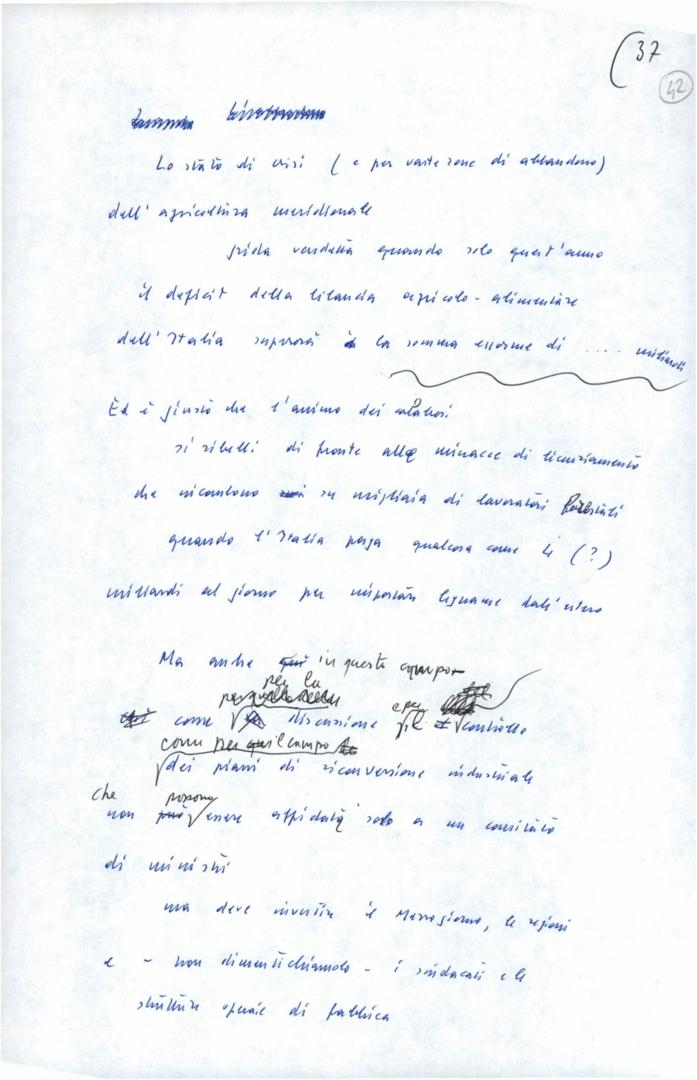 (37
42
Lo stato di crisi (e per vaste zone di abbandono)
dell'agricoltura meridionale
grida vendetta quando solo quest'anno
il deficit della bilancia agricolo-alimentare
dell'Italia supererà la somma enorme di .... miliardi
Ed è giusto che l'animo dei calabresi
si ribelli di fronte alle minacce di licenziamento
che incombono su migliaia di lavoratori forestali
quando l'Italia paga qualcosa come 4 (?)
miliardi al giorno per importare legname dall'estero
Ma anche in questo campo
per la
come discussione e per il controllo
come per il campo
dei piani di riconversione industriale
che possono
non essere affidati solo a un comitato
di ministri
ma deve investire il Mezzogiorno, le regioni
e - non dimentichiamolo - i sindacati e le
strutture operaie di fabbrica